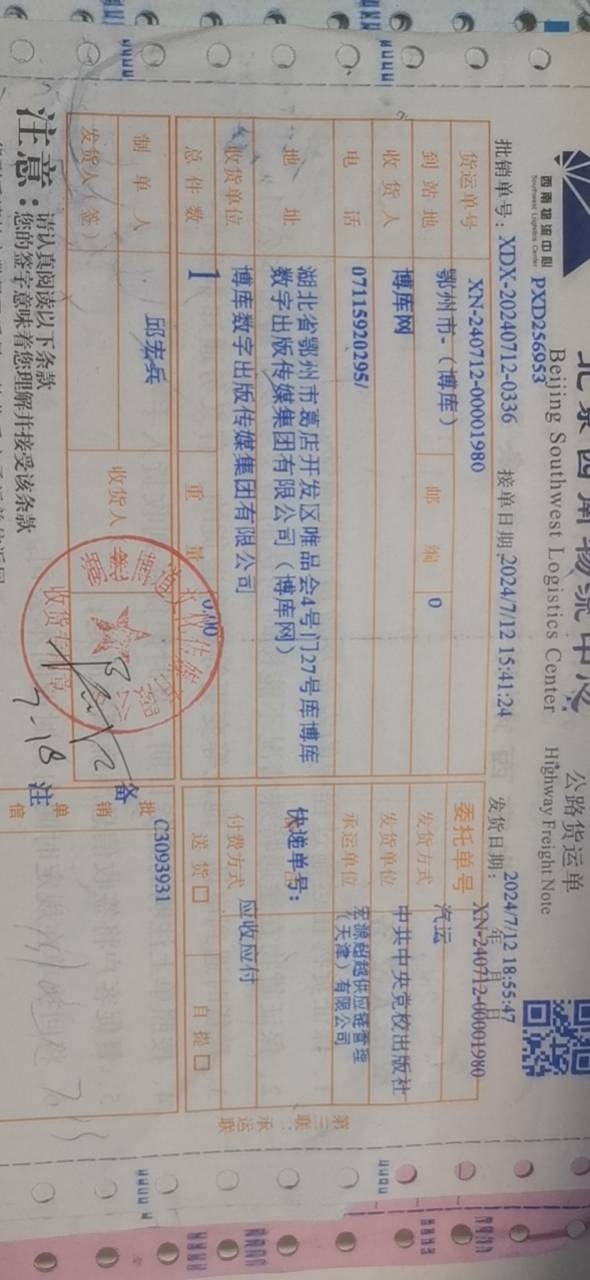 北京西南物流中心
Beijing Southwest Logistics Center
公路货运单
Highway Freight Note
西南物流中心
Southwest Logistics Center
PXD256953
批销单号：XDX-20240712-0336 接单日期 2024/7/12 15:41:24 发货日期：2024/7/12 18:55:47
年 月 日
货运单号 XN-240712-00001980 委托单号 XN-240712-00001980
到站地 鄂州市-（博库） 邮编 0 发货方式 汽运
收货人 博库网 发货单位 中共中央党校出版社
电话 07115920295/ 承运单位 宏源超越供应链管理（天津）有限公司
地址 湖北省鄂州市葛店开发区唯品会4号门27号库博库
数字出版传媒集团有限公司（博库网） 快递单号：
收货单位 博库数字出版传媒集团有限公司 付费方式 应收应付
总件数 1 重量 0.00 送货□ 自提□
制单人 邱宏兵 收货人
发货人（签）
收货专用章
7-18
备注
批销单信
C3093931
第三联：承运联
注意：请认真阅读以下条款
您的签字意味着您理解并接受该条款